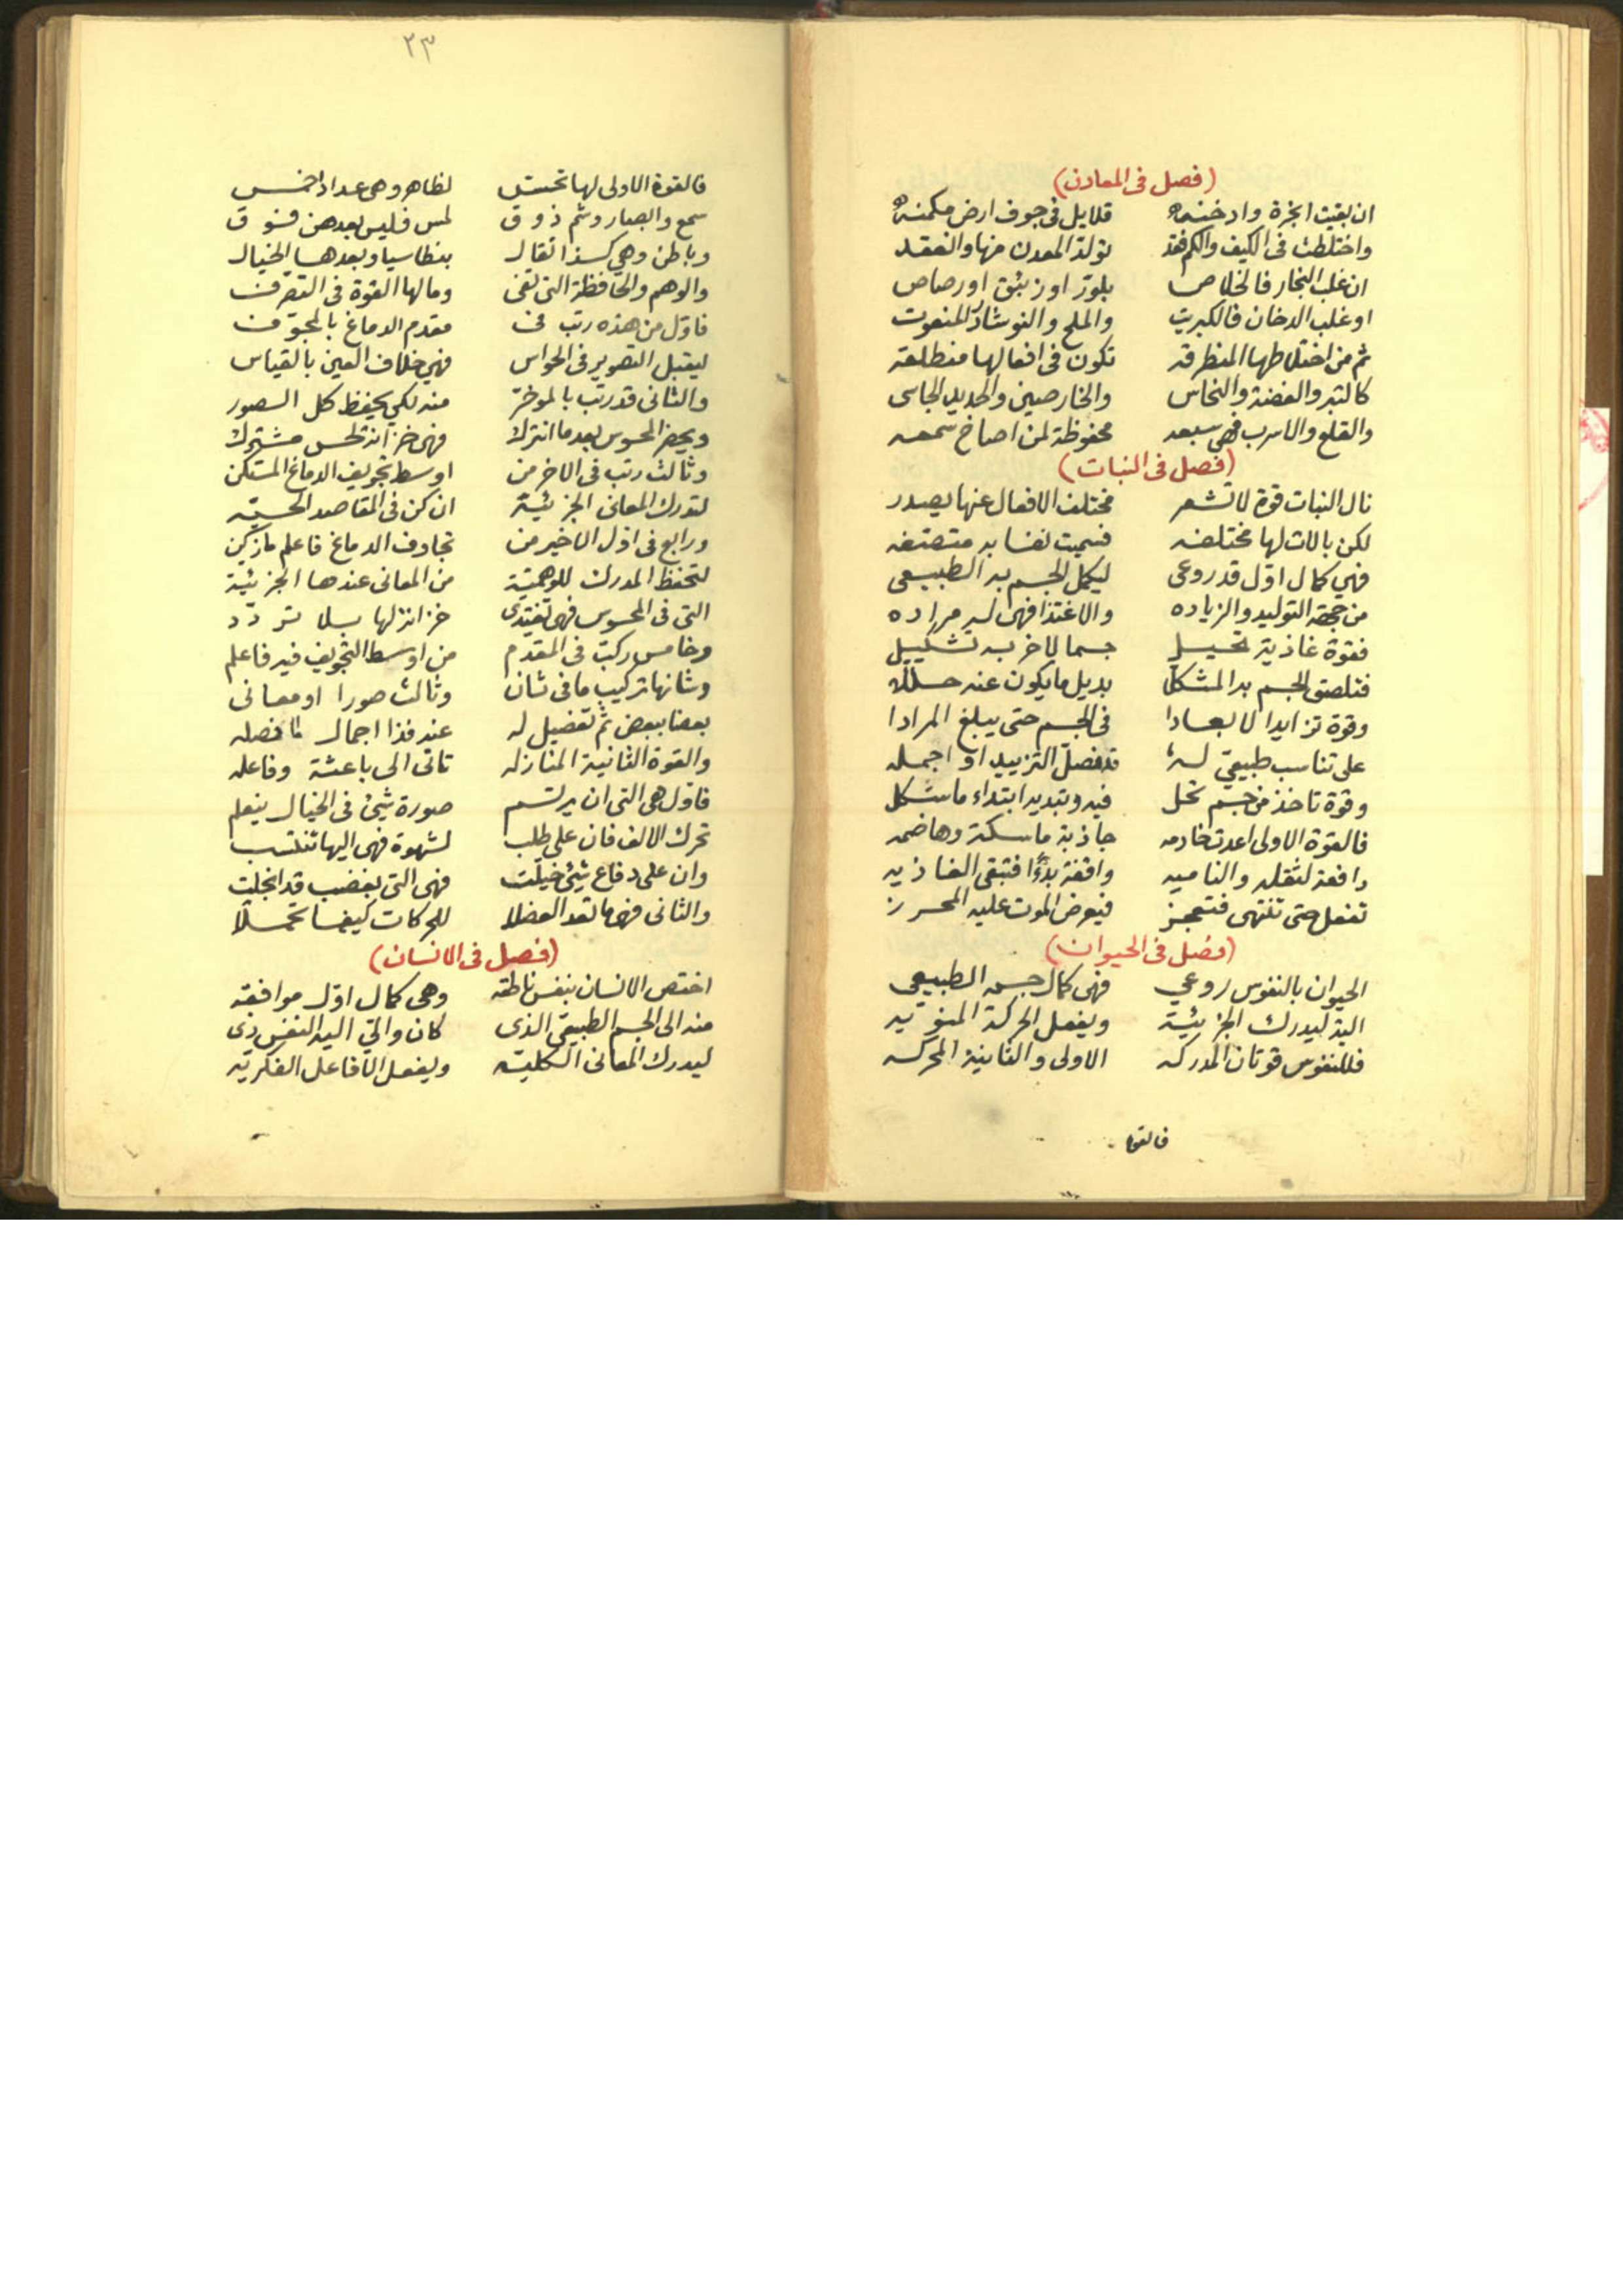 (فصل فى المعادن)
ان بقيت ابخرة وادخنه قلايل فى جوف ارض مكمنه
واختلطت فى الكيف والكم فقد تولد المعدن منها وانعقد
ان غلب البخار فالخلاص بلور او زئبق او رصاص
او غلب الدخان فالكبريت والملح والنوشادر المنعوت
ثم من اختلاطها المنطرقه تكون فى افعالها منطلقه
كالتبر والفضة والنحاس والخارصين والحديد الجاسى
والقلع والاسرب فهى سبعه محفوظة لمن اصاخ سمعه
(فصل فى النبات)
نال النبات قوة لا تشعر مختلف الافعال عنها يصدر
لكن بالات لها مختلفه فسميت نفسا به متصفه
فهى كمال اول قد روعى ليكمل الجسم به الطبيعى
من جهة التوليد والزياده والاغتذا فهى له مراده
فقوة غاذية تحيل جسما لاخر به تشكيل
فتلصق الجسم بدا لمشكلا بديل ما يكون عنه حللا
وقوة تزايد الابعادا فى الجسم حتى يبلغ المرادا
على تناسب طبيعى له قد فصل التزييد او اجمله
وقوة تاخذ من جسم تحل فيه وتبديه ابتداء ما شكل
فالقوة الاولى اعدت خادمه جاذبة ماسكة وهاضمه
دافعة لثقله والناميه واقفة بدءا فتبقى الغاذيه
تفعل حتى تنتهى فتعجز فيعرض الموت عليه المحرز
(فصل فى الحيوان)
الحيوان بالنفوس روعي فهى كمال جسمه الطبيعى
اليه ليدرك الجزئية ويفعل الحركة
فللنفوس قوتان المدركه الاولى والثانية المحركه
فالقوة
٢٣
فالقوة الاولى لها تحسس لظاهر وهى عداد خمس
سمع وابصار وشم ذوق لمس فليس بعدهن فوق
وباطن وهى كذا تقال بنطاسيا وبعدها الخيال
والوهم والحافظة التى تفى وما لها القوة فى التصرف
فاول من هذه رتب فى مقدم الدماغ بالمجوف
ليقبل التصوير فى الحواس فهى خلاف العين بالقياس
والثانى قد رتب بالموخر منه لكى يحفظ كل الصور
ويحضر المحسوس بعد ما اترك فهى خزانة لحس مشترك
وثالث رتب فى الاخر من اوسط تجويف الدماغ المستكن
لتدرك المعانى الجزئية ان كن فى المقاصد الحسيه
ورابع فى اول الاخير من تجاوف الدماغ فاعلم
لتحفظ المدرك للوهمية من المعانى عندها الجزئية
التى فى المحسوس فهى تغتدى خزانة لها بلا تردد
وخامس ركبت فى المقدم من اوسط التجويف فيه فاعلم
وشانها تركيب ما فى شان وثالث صورا او معانى
بعضا ببعض ثم تفصيل له عند فذا اجمال ما فصله
والقوة الثانية المنازله تاتى الى باعثة وفاعله
فاول هى التى ان يرتسم صورة شئ فى الخيال ينعلم
تحرك الالف فان على طلب لشهوة فهى اليها تنتسب
وان على دفاع شئ خيلت فهى التى بغضب قد انجلت
والثانى فهى ما تعد العضلا للحركات كيفما تحملا
(فصل فى الانسان)
اختص الانسان بنفس ناطقه وهى كمال اول موافقه
منه الى الجسم الطبيعى الذى كان اليه النفس ذى
ليدرك المعانى الكليه ويفعل الافاعل الفكريه